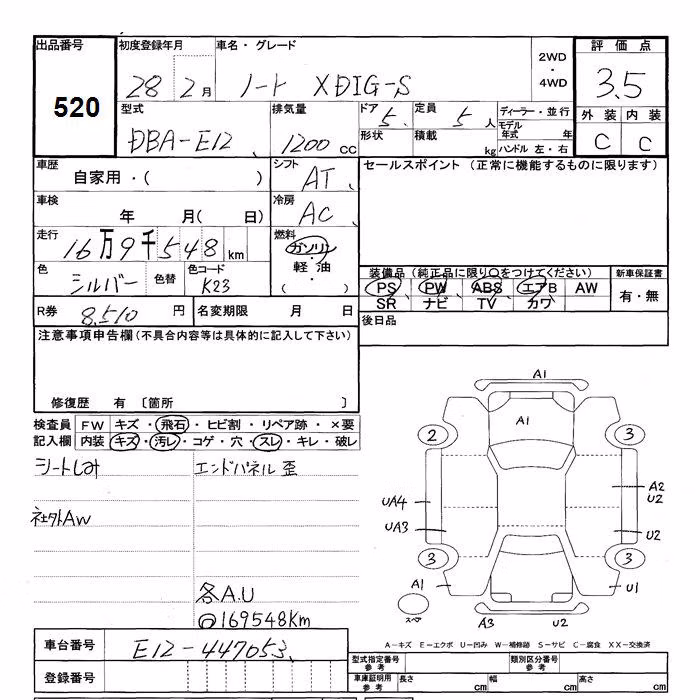 出品番号 初度登録年月 車名・グレード 2WD・4WD 評価点
520 28 2月 ノート X DIG-S 3.5
型式 排気量 ドア 定員 ディーラー・並行 外装 内装
DBA-E12 1200cc 5 5人 モデル年式 年 C C
形状 積載 kg ハンドル 左・右
車歴 シフト セールスポイント (正常に機能するものに限ります)
自家用・( ) AT
車検 冷房
年 月( 日) AC
走行 燃料
16万9千548km ガソリン・軽油・( )
色 色替 色コード 装備品(純正品に限り○をつけてください) 新車保証書
シルバー K23 PS PW ABS エアB AW 有・無
SR ナビ TV カワ
R券 8,510円 名変期限 月 日 後日品
注意事項申告欄(不具合内容等は具体的に記入して下さい)
修復歴 有 〔箇所 〕
検査員 FW キズ・飛石・ヒビ割・リペア跡・×要
記入欄 内装 キズ・汚レ・コゲ・穴・スレ・キレ・破レ
シートしみ エンドパネル歪
社外AW
各A.U
169548Km
A1
A1
2 3
A2
U2
UA4
UA3 U2
3 3
A1 U1
スペア A3 U2
A-キズ E-エクボ U-凹み W-補修跡 S-サビ C-腐食 XX-交換済
車台番号 E12-447053
型式指定番号 参考 類別区分番号 参考
登録番号 車庫証明用 参考 長さ cm 幅 cm 高さ cm